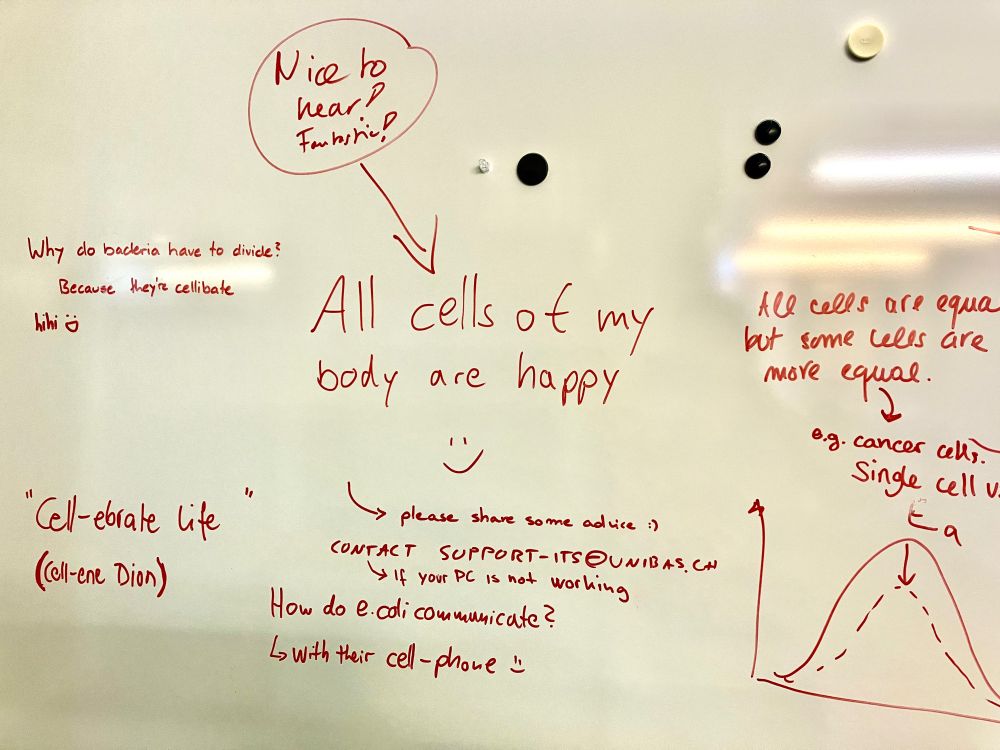 Nice to
hear!
Fantastic!
Why do bacteria have to divide?
Because they're cellibate
hihi
All cells of my
body are happy
:)
please share some advice :)
CONTACT SUPPORT-ITS@UNIBAS.CH
If your PC is not working
How do e.coli communicate?
with their cell-phone
"Cell-ebrate life"
(Cell-ene Dion)
All cells are equa
but some cells are
more equal.
e.g. cancer cells.
Single cell v.
Ea